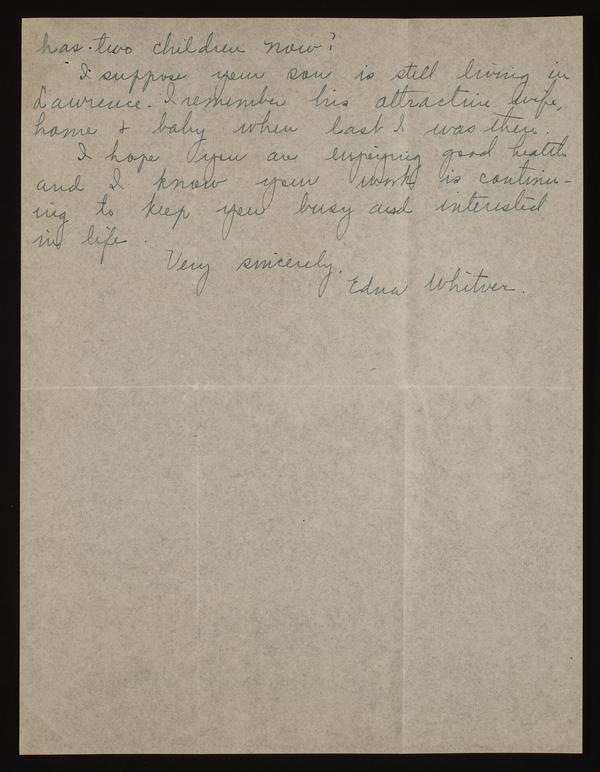 has two children now?
I suppose your son is still living in
Lawrence. I remember his attractive wife,
home & baby when last I was there.
I hope you are enjoying good health
and I know your work is continu-
ing to keep you busy and interested
in life.
Very sincerely,
Edna Whitver.